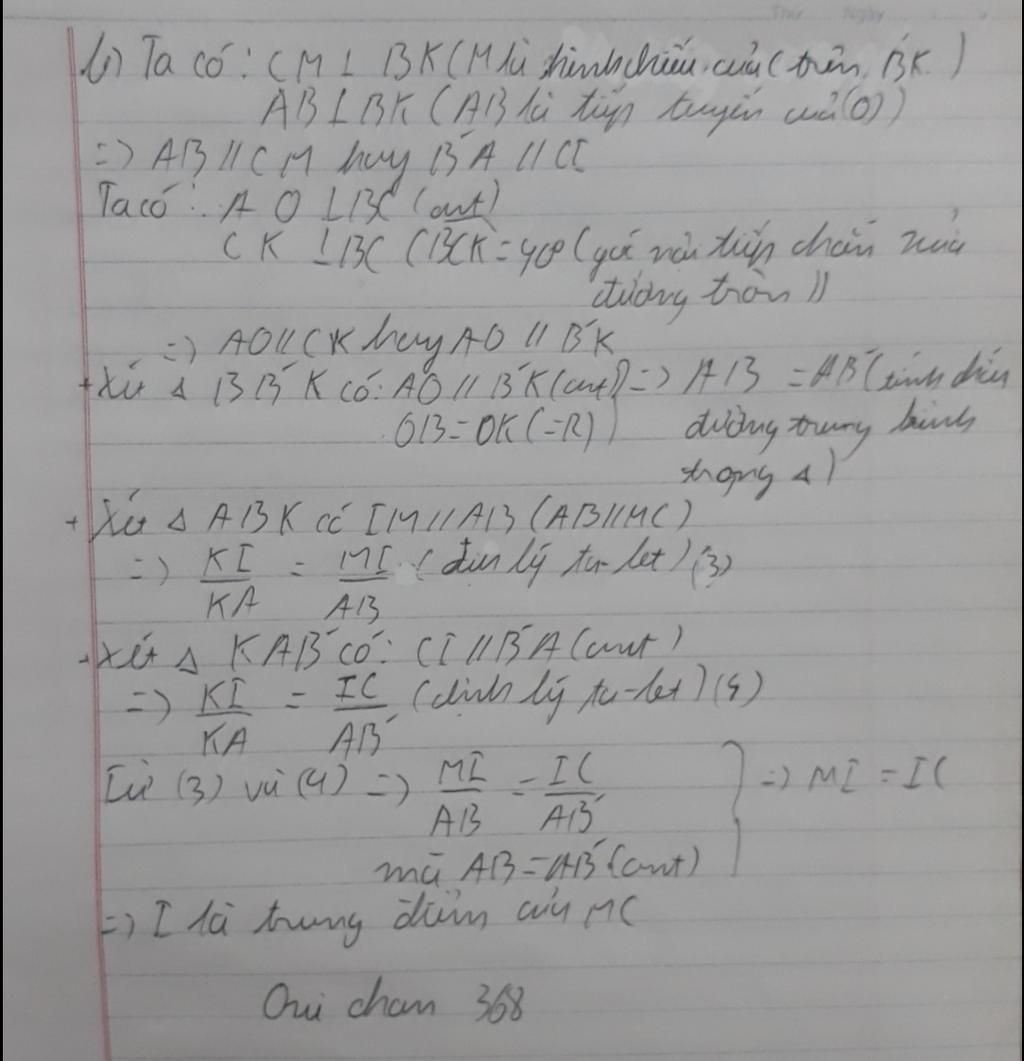 b) Ta có: CM ⊥ BK (M là hình chiếu của C trên BK)
AB ⊥ BK (AB là tiếp tuyến của (O))
=> AB // CM hay B'A // CI
Ta có: AO ⊥ BC (cmt)
CK ⊥ BC (BCK = 90° (góc nội tiếp chắn nửa
đường tròn))
=> AO // CK hay AO // B'K
+ Xét Δ BB'K có: AO // B'K (cmt) => AB = AB' (tính chất
OB = OK (= R) đường trung bình
trong Δ)
+ Xét Δ ABK có IM // AB (AB // MC)
=> KI/KA = MI/AB (định lý ta-let) (3)
+ Xét Δ KAB' có: CI // B'A (cmt)
=> KI/KA = IC/AB' (định lý ta-let) (4)
Từ (3) và (4) => MI/AB = IC/AB' => MI = IC
mà AB = AB' (cmt)
=> I là trung điểm của MC
Oui chan 368